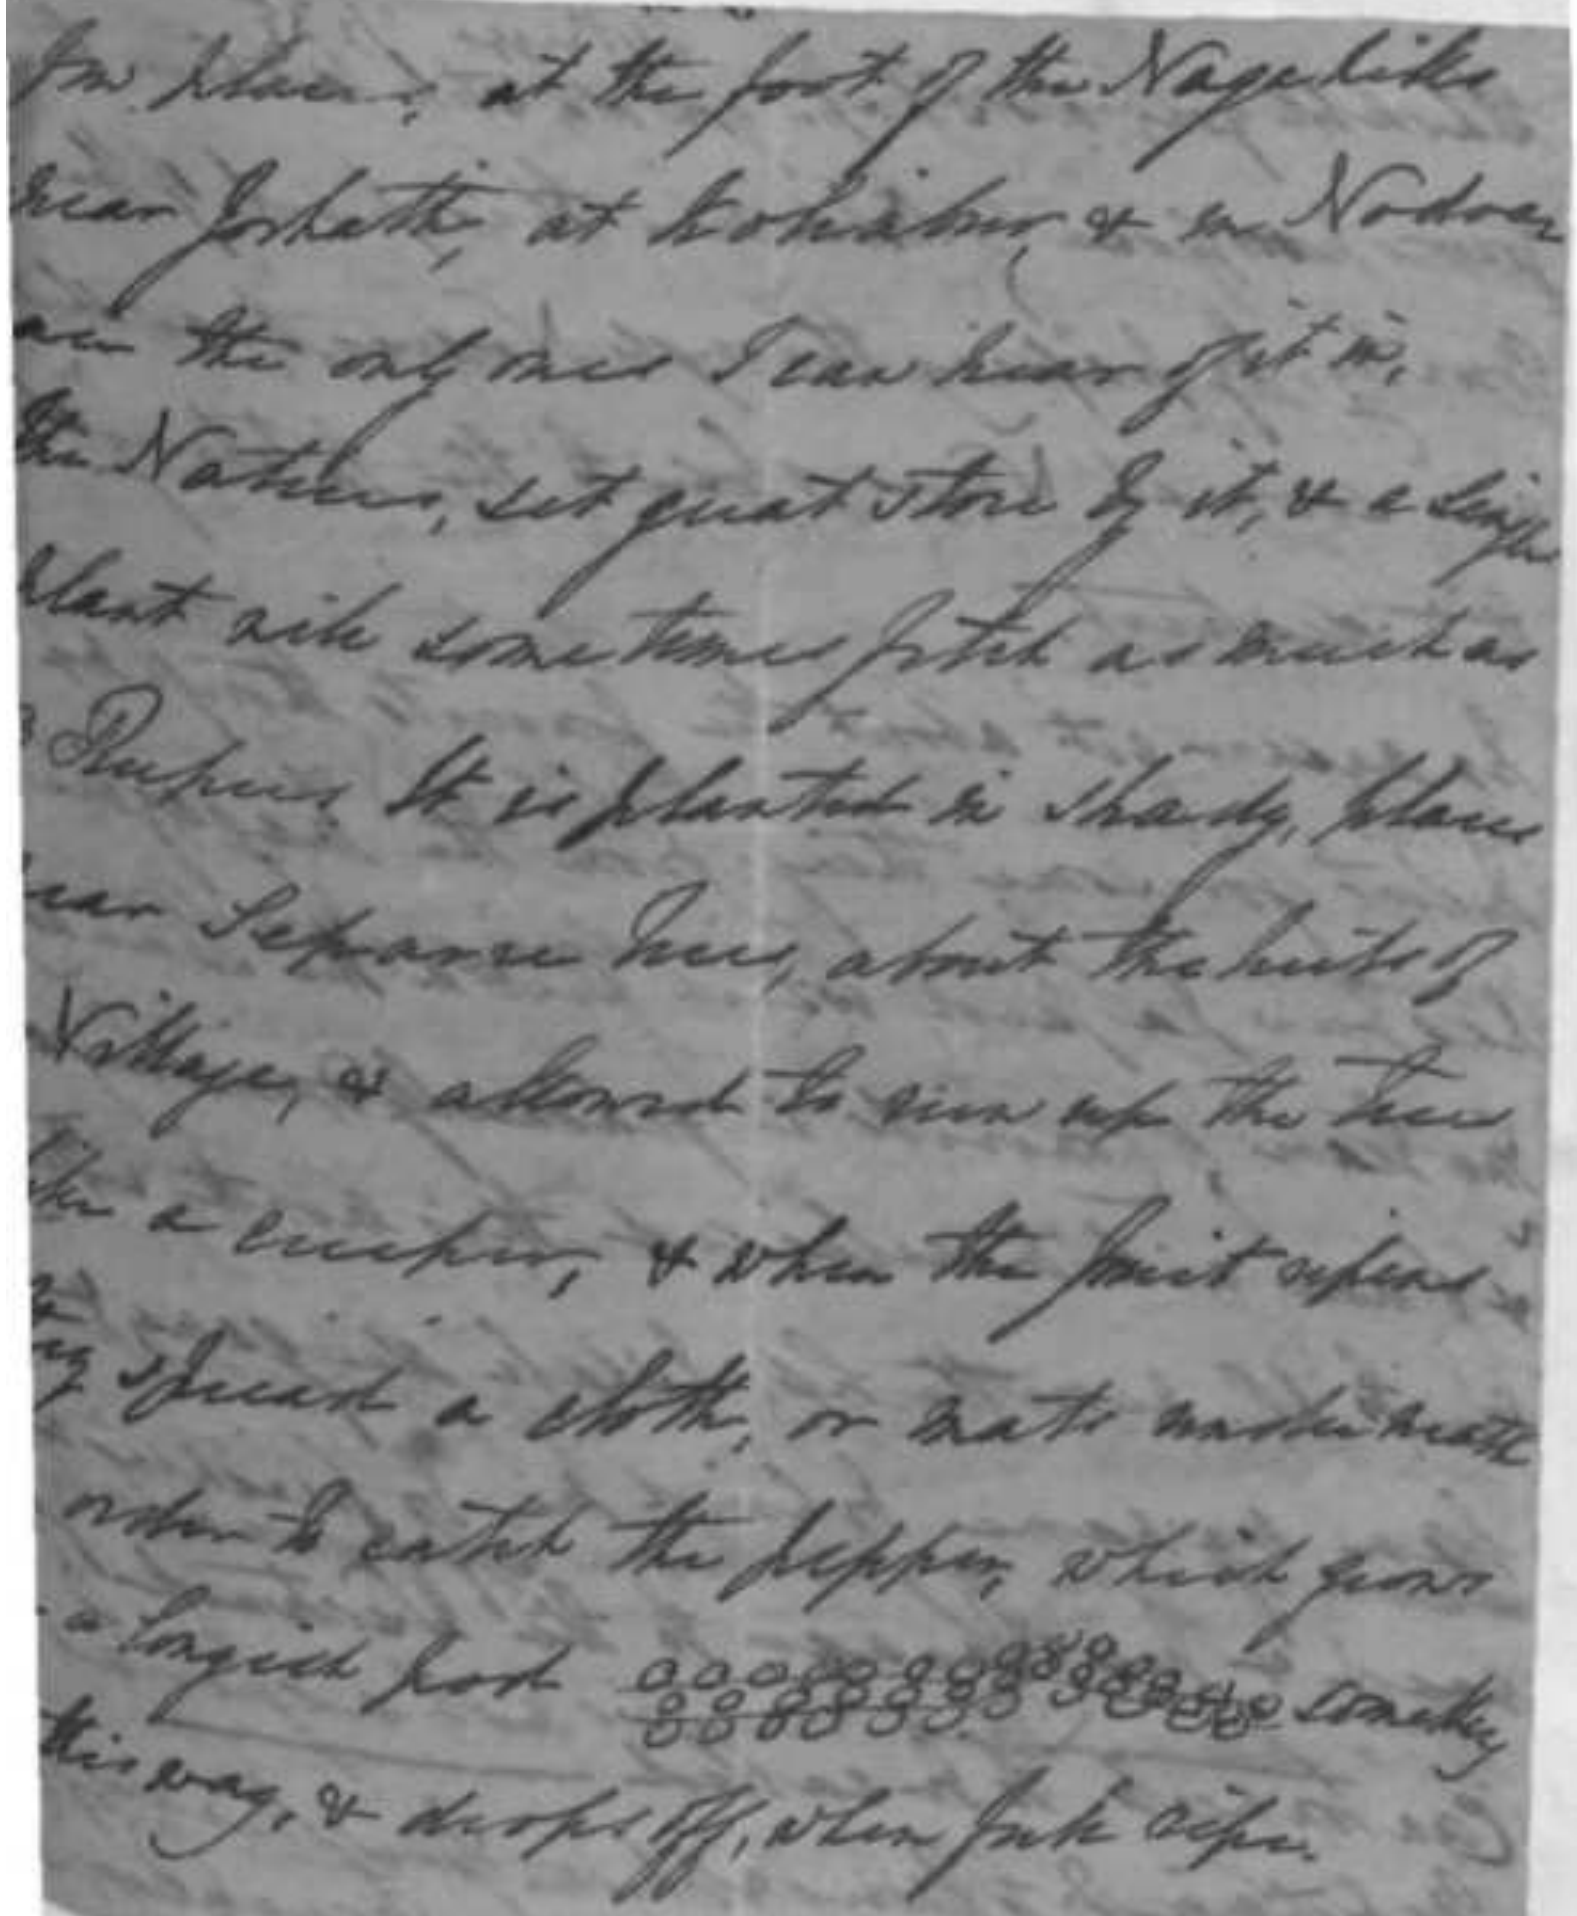 few places, at the foot of the Naga hills
near Jorhath, at & in
are the only ones I can hear of it in,
the Natives, set great store by it, & a single
plant will sometimes fetch as much as
Rupees. It is planted in shady, places
near trees, about the huts of
Village, & allowed to run up the trees
like a creeper, & when the fruit ripens
they spread a cloth, or mats underneath
order to catch the pepper, which grows
a longish pod something
this way, & drops off, when fully ripe.